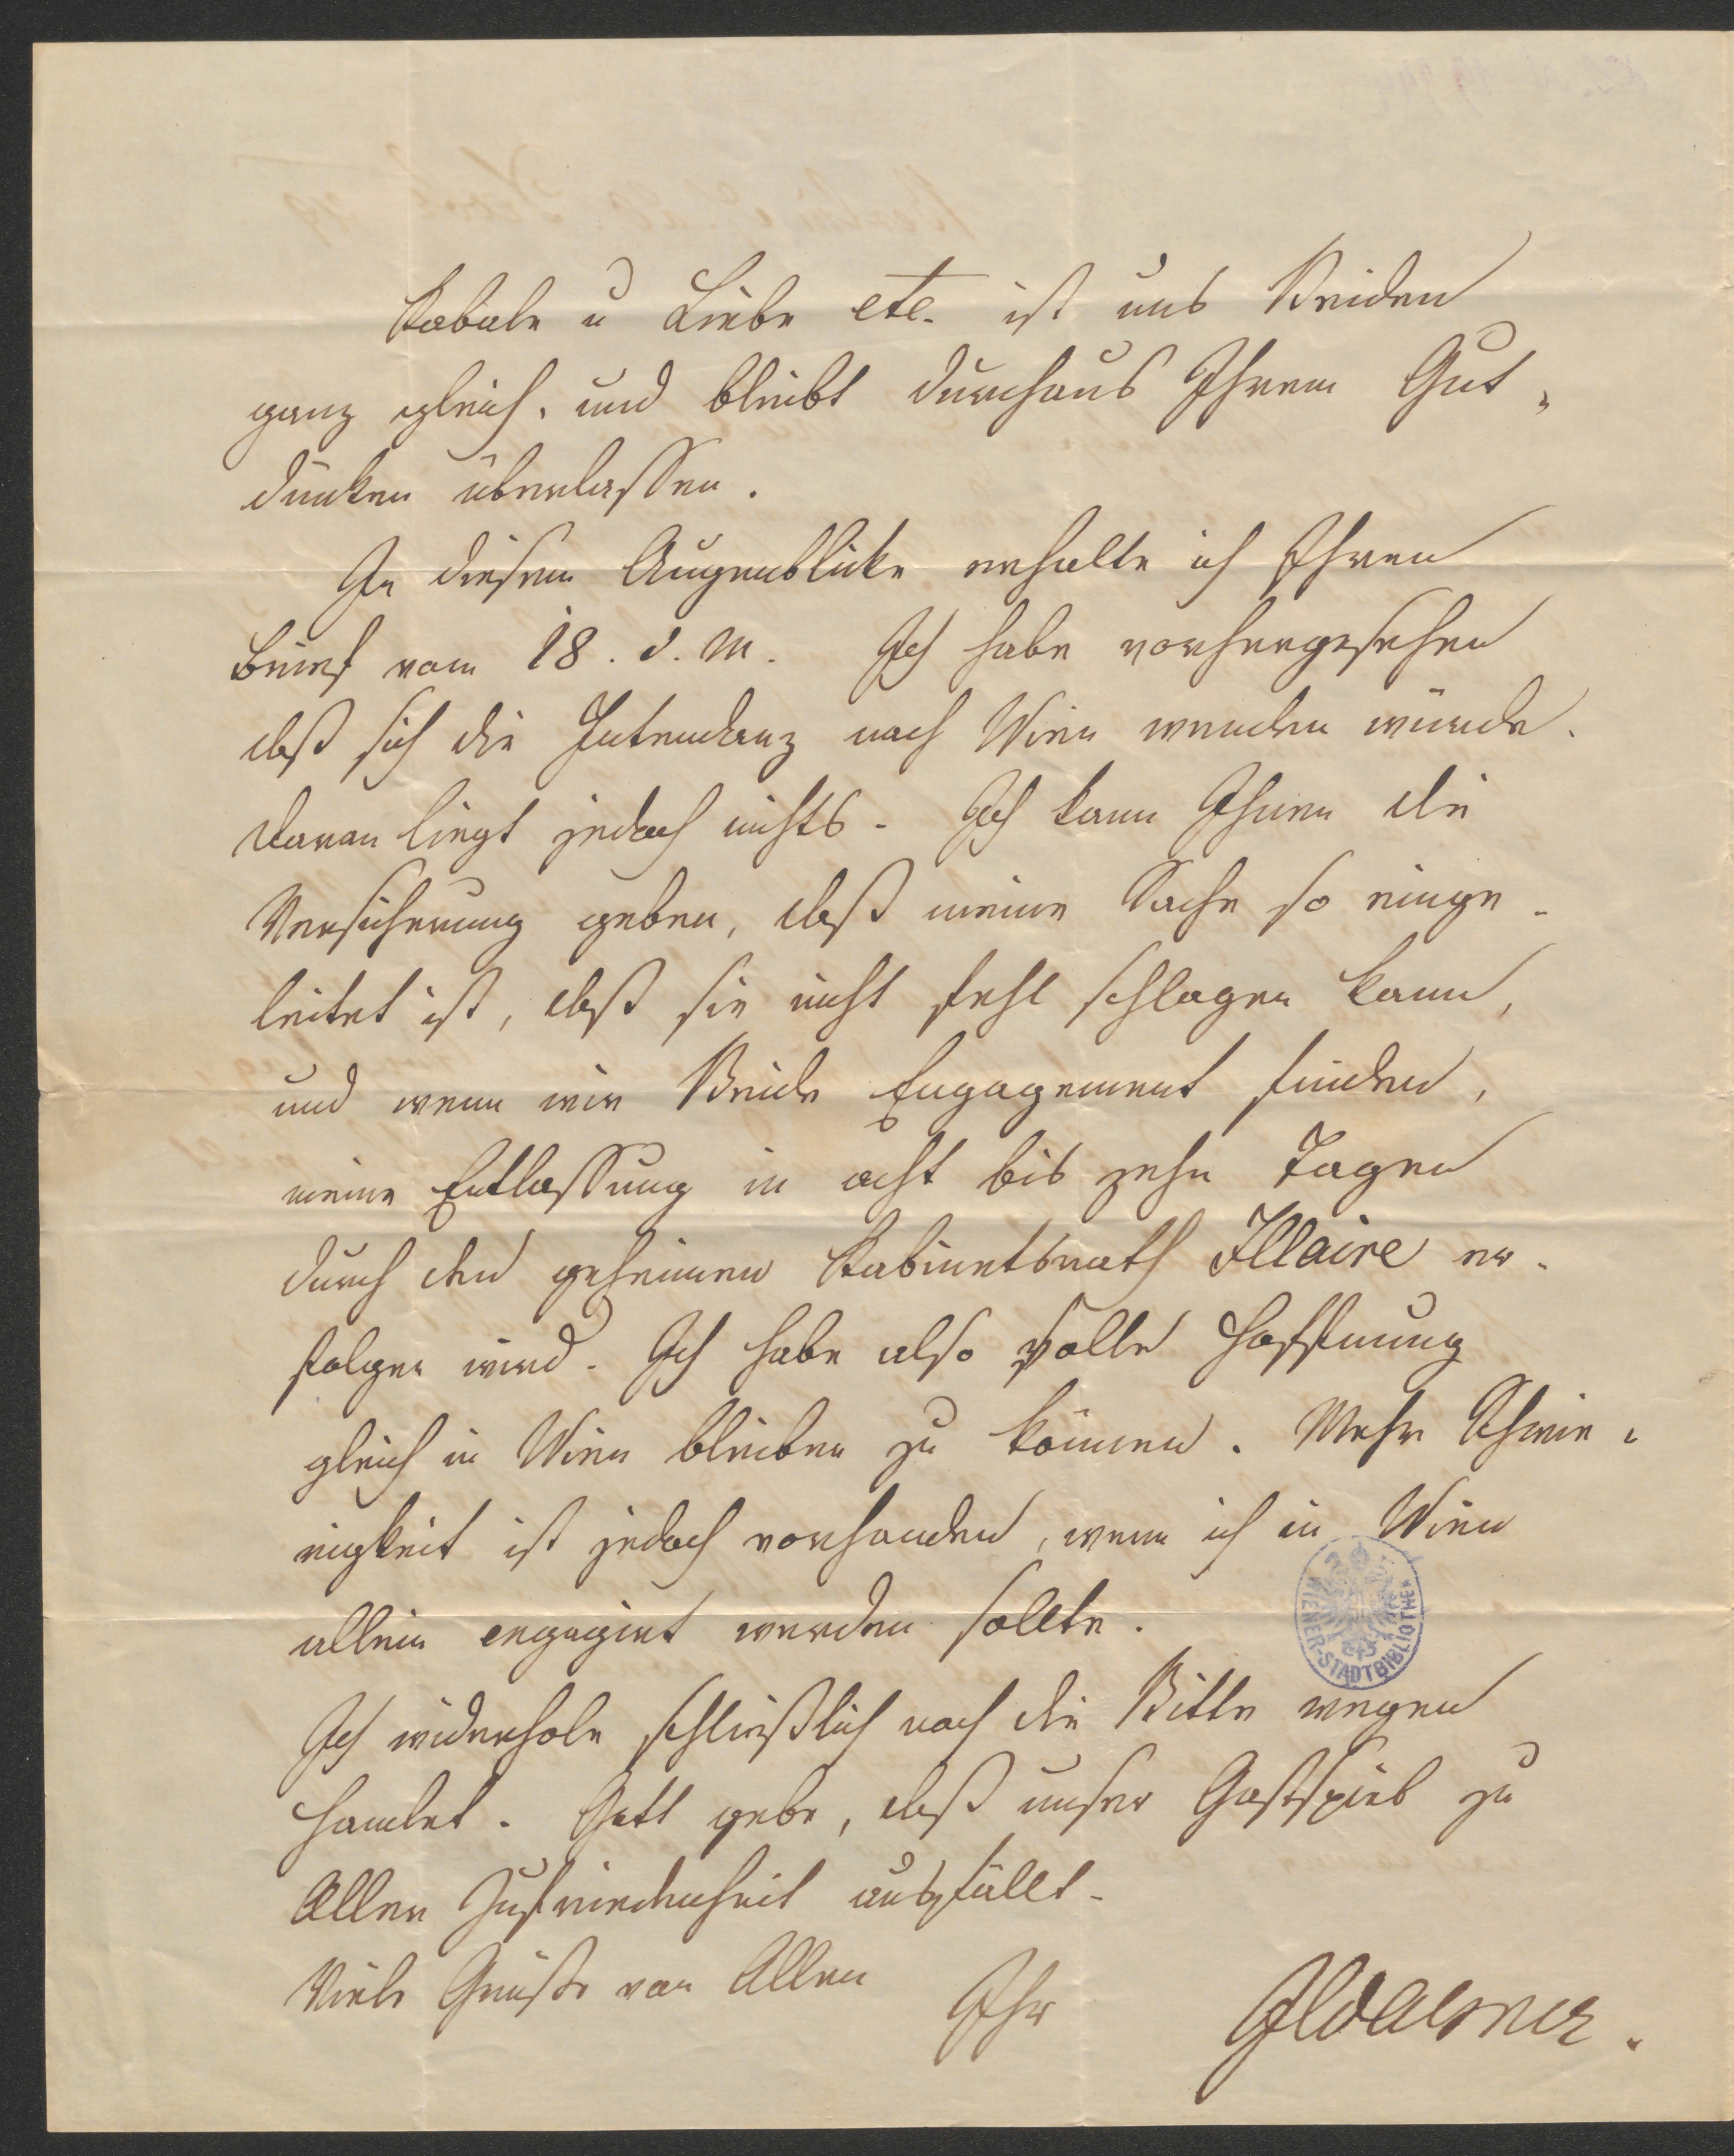 Kabale u Liebe etc. ist uns Beiden
ganz gleich, und bleibt durchaus Ihrem Gut-
dünken überlassen.
In diesem Augenblicke erhalte ich Ihren
Brief vom 18. d. M. Ich habe vorhergesehen
daß sich die Intendanz nach Wien wenden würde.
Daran liegt jedoch nichts. Ich kann Ihnen die
Versicherung geben, daß meine Sache so einge-
leitet ist, daß sie nicht fehl schlagen kann,
und wenn wir Beide Engagement finden,
meine Entlassung in acht bis zehn Tagen
durch den geheimen Kabinetsrath Illaire er-
folgen wird. Ich habe also volle Hoffnung
gleich in Wien bleiben zu können. Mehr Schwie-
rigkeit ist jedoch vorhanden, wenn ich in Wien
allein engagirt werden sollte.
Ich widerhole schließlich noch die Bitte wegen
Hamlet. Gott gebe, daß unser Gastspiel zu
Aller Zufriedenheit ausfällt.
Viele Grüße von Allen
Ihr
WIENER-STADTBIBLIOTHEK